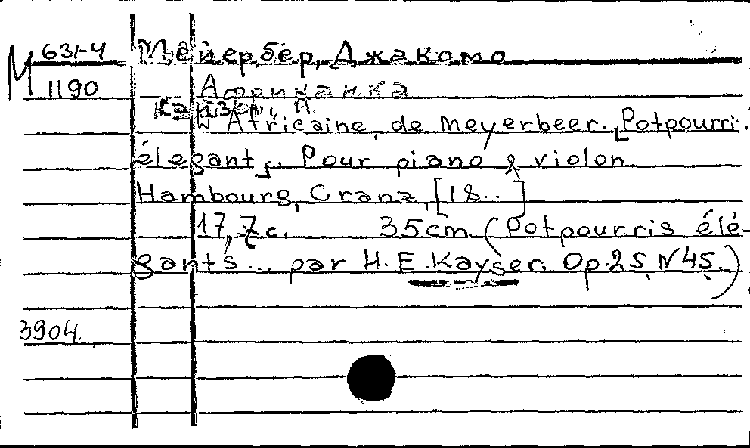 М 631-4 Мейербер, Джакомо
1190 Африканка
Кайзер, Л.
L'Africaine, de Meyerbeer. [Potpourri.
élégants. Pour piano & violon.
Hambourg, Cranz, [18..]
17, 7 c. 35 cm (Potpourris élé-
gants... par H. E. Kayser. Op. 25, N 45.)
3904.